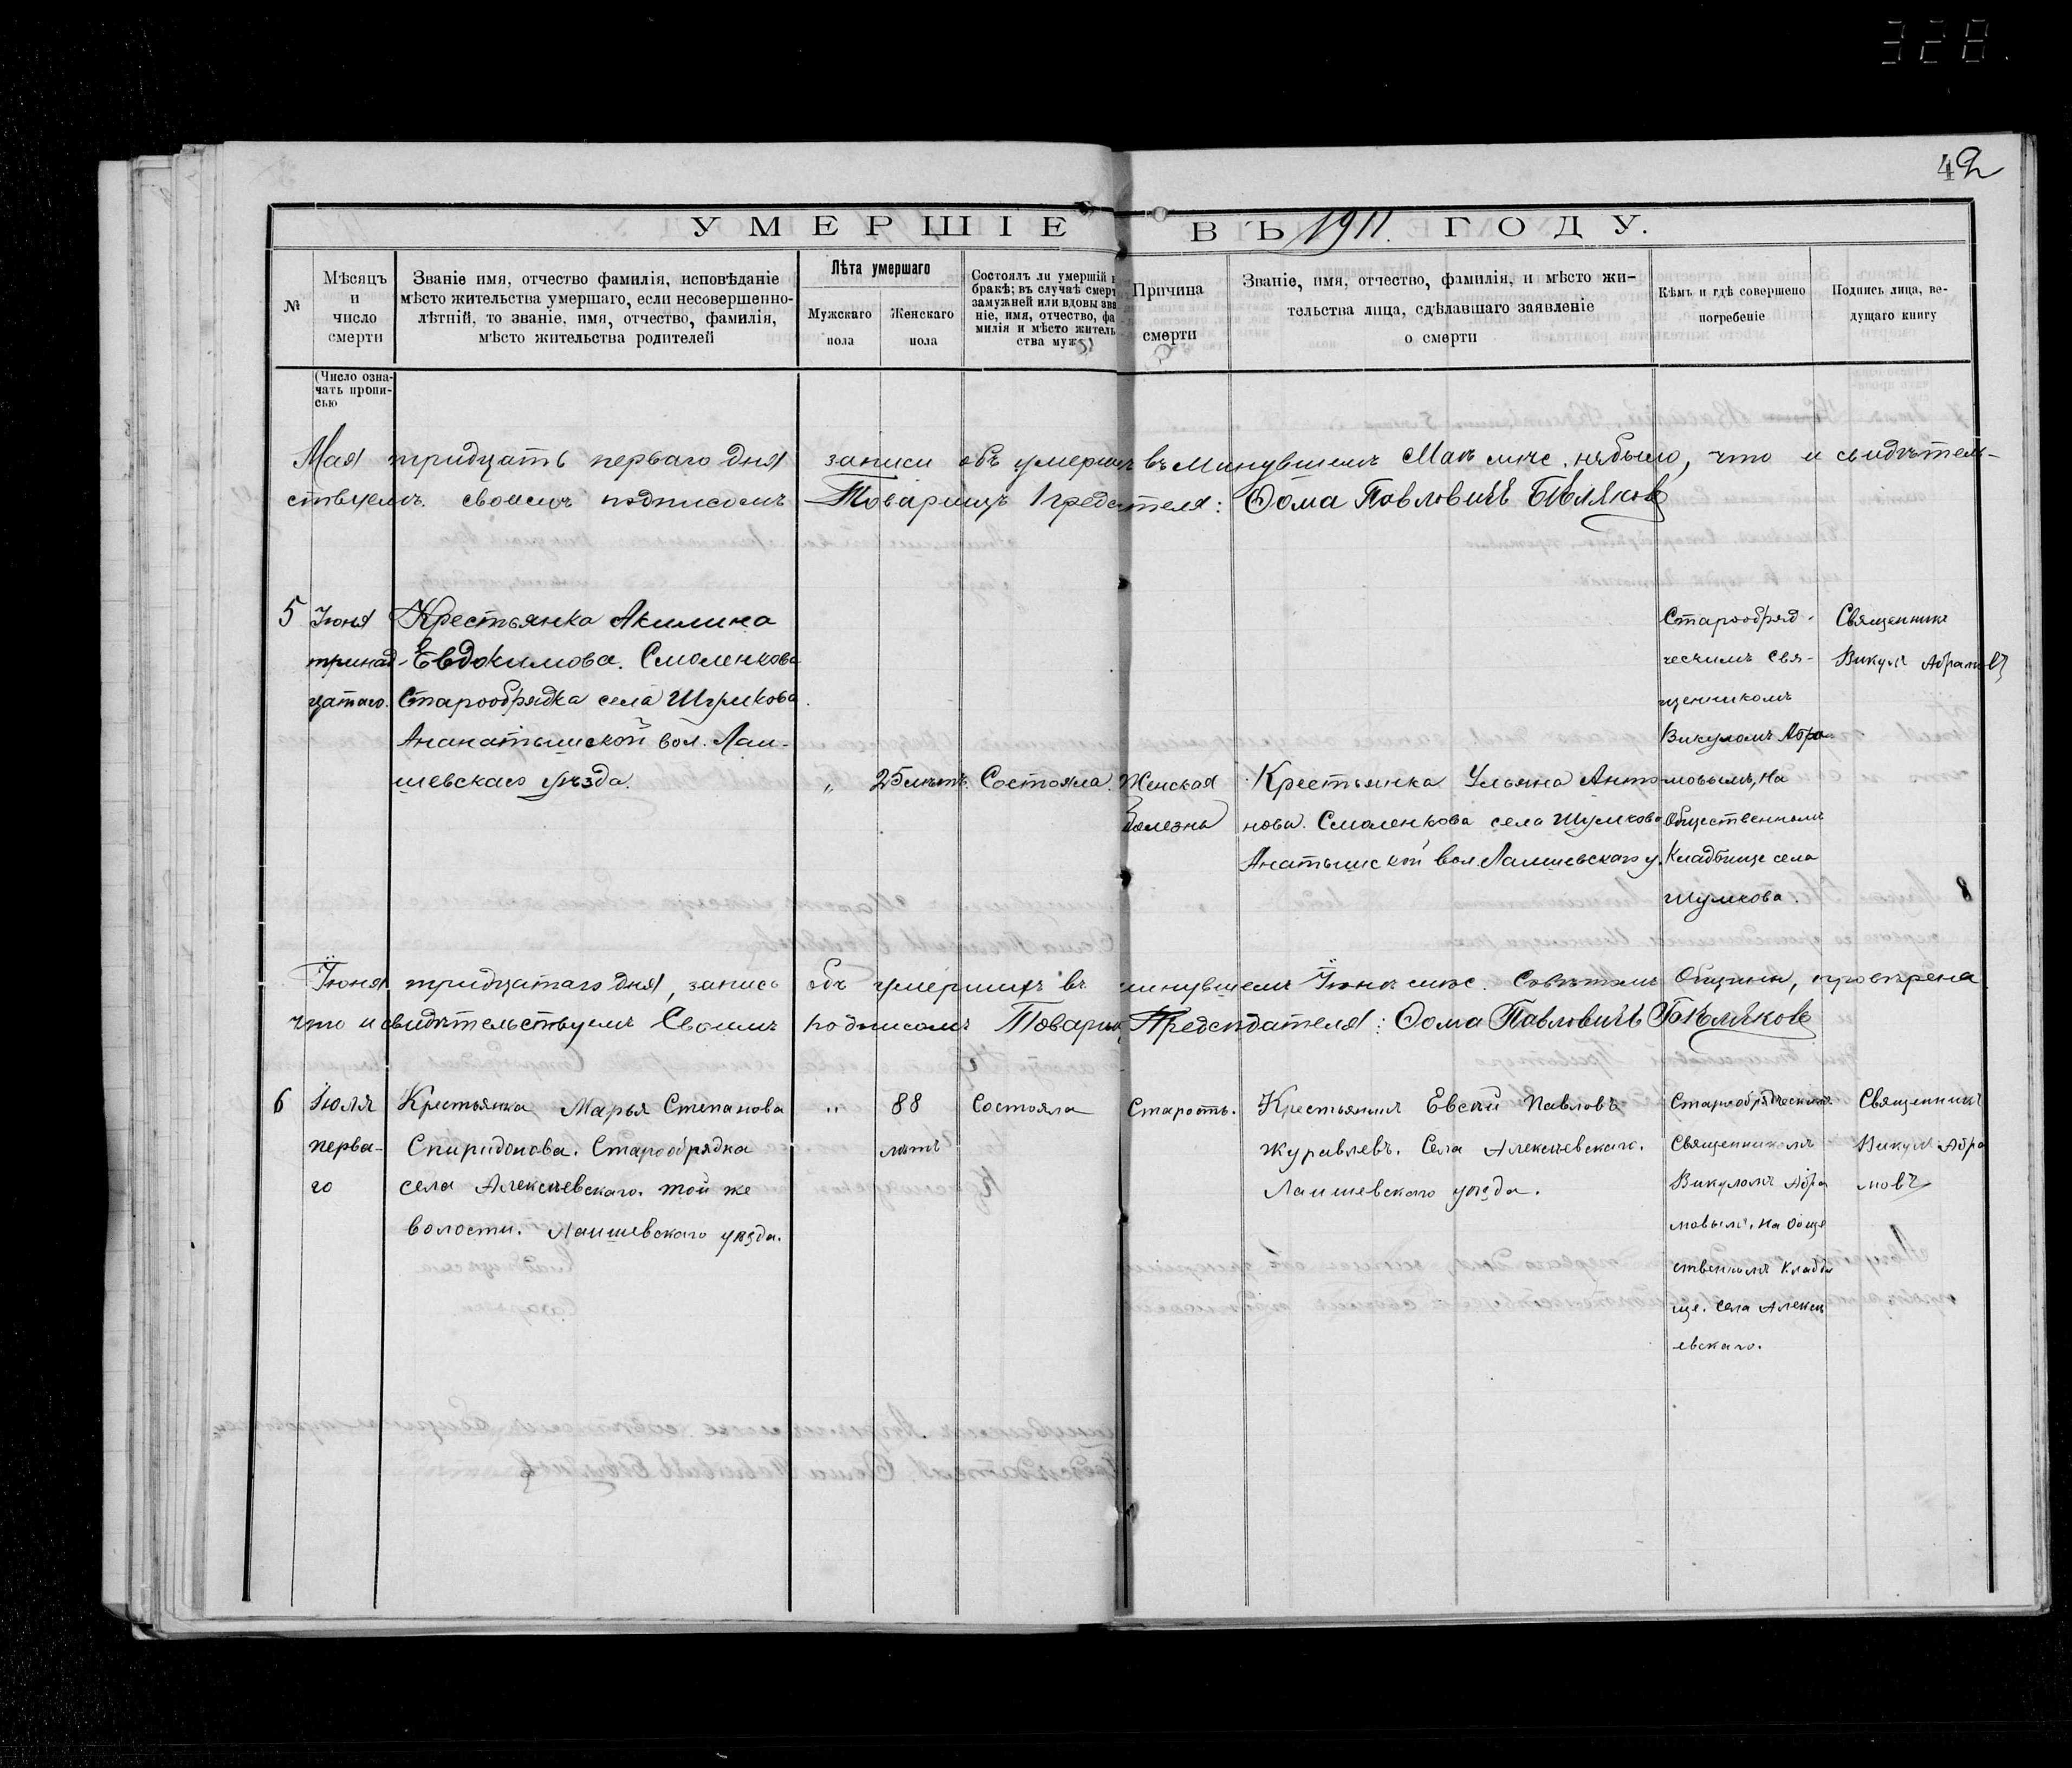 328.
42
УМЕРШІЕ ВЪ 1911 ГОДУ.
№
Мѣсяцъ
и
число
смерти
Званіе имя, отчество фамилія, исповѣданіе
мѣсто жительства умершаго, если несовершенно-
лѣтній, то званіе, имя, отчество, фамилія,
мѣсто жительства родителей
Лѣта умершаго
Мужскаго
пола
Женскаго
пола
Состоялъ ли умершій
бракѣ; въ случаѣ смерт
замужней или вдовы зва
ніе, имя, отчество, фа
милія и мѣсто житель
ства мужа
Причина
смерти
Званіе, имя, отчество, фамилія, и мѣсто жи-
тельства лица, сдѣлавшаго заявленіе
о смерти
Кѣмъ и гдѣ совершено
погребеніе
Подпись лица, ве-
дущаго книгу
(Число озна-
чать пропи-
сью
Мая тридцать перваго дня записи объ умершихъ въ минувшемъ Маѣ мѣс. небыло, что и свидѣтель-
ствуемъ своимъ подписомъ Товарищъ Предсѣдателя: Ѳома Павловичъ Бѣляковъ
5
Іюня
тринад-
цатаго.
Крестьянка Акилина
Евдокимова. Смоленкова
Старообрядка села Шумкова
Анатышской вол. Лаи-
шевскаго уѣзда.
„
25 лѣтъ.
Состояла.
Женская
болезнь
Крестьянка Ульяна Анто
нова. Смоленкова села Шумкова
Анатышской вол. Лаишевскаго у.
Старообряд-
ческимъ свя-
щенникомъ
Викуломъ Абра-
мовымъ, на
Общественномъ
Кладбище села
Шумкова.
Священникъ
Викулъ Абрамовъ
Іюня тридцатаго дня, запись объ умершихъ въ минувшемъ Іюнѣ мѣс. Совѣтомъ Общины, проверена
что и свидѣтельствуемъ Своимъ подписомъ Товарищ Предсѣдателя: Ѳома Павловичъ Бѣляковъ
6
Іюля
перва-
го
Крестьянка Марья Степанова
Спиридонова. Старообрядка
села Алексѣевскаго. той же
волости. Лаишевскаго уѣзда.
„
88
лѣтъ
Состояла
Старость.
Крестьянинъ Евсѣй Павловъ
Журавлевъ. Села Алексѣевскаго.
Лаишевскаго уѣзда.
Старообрядческимъ
Священникомъ
Викуломъ Абра
мовымъ. на Обще
ственномъ кладби
ще. села Алексѣ
евскаго.
Священникъ
Викулъ Абра
мовъ